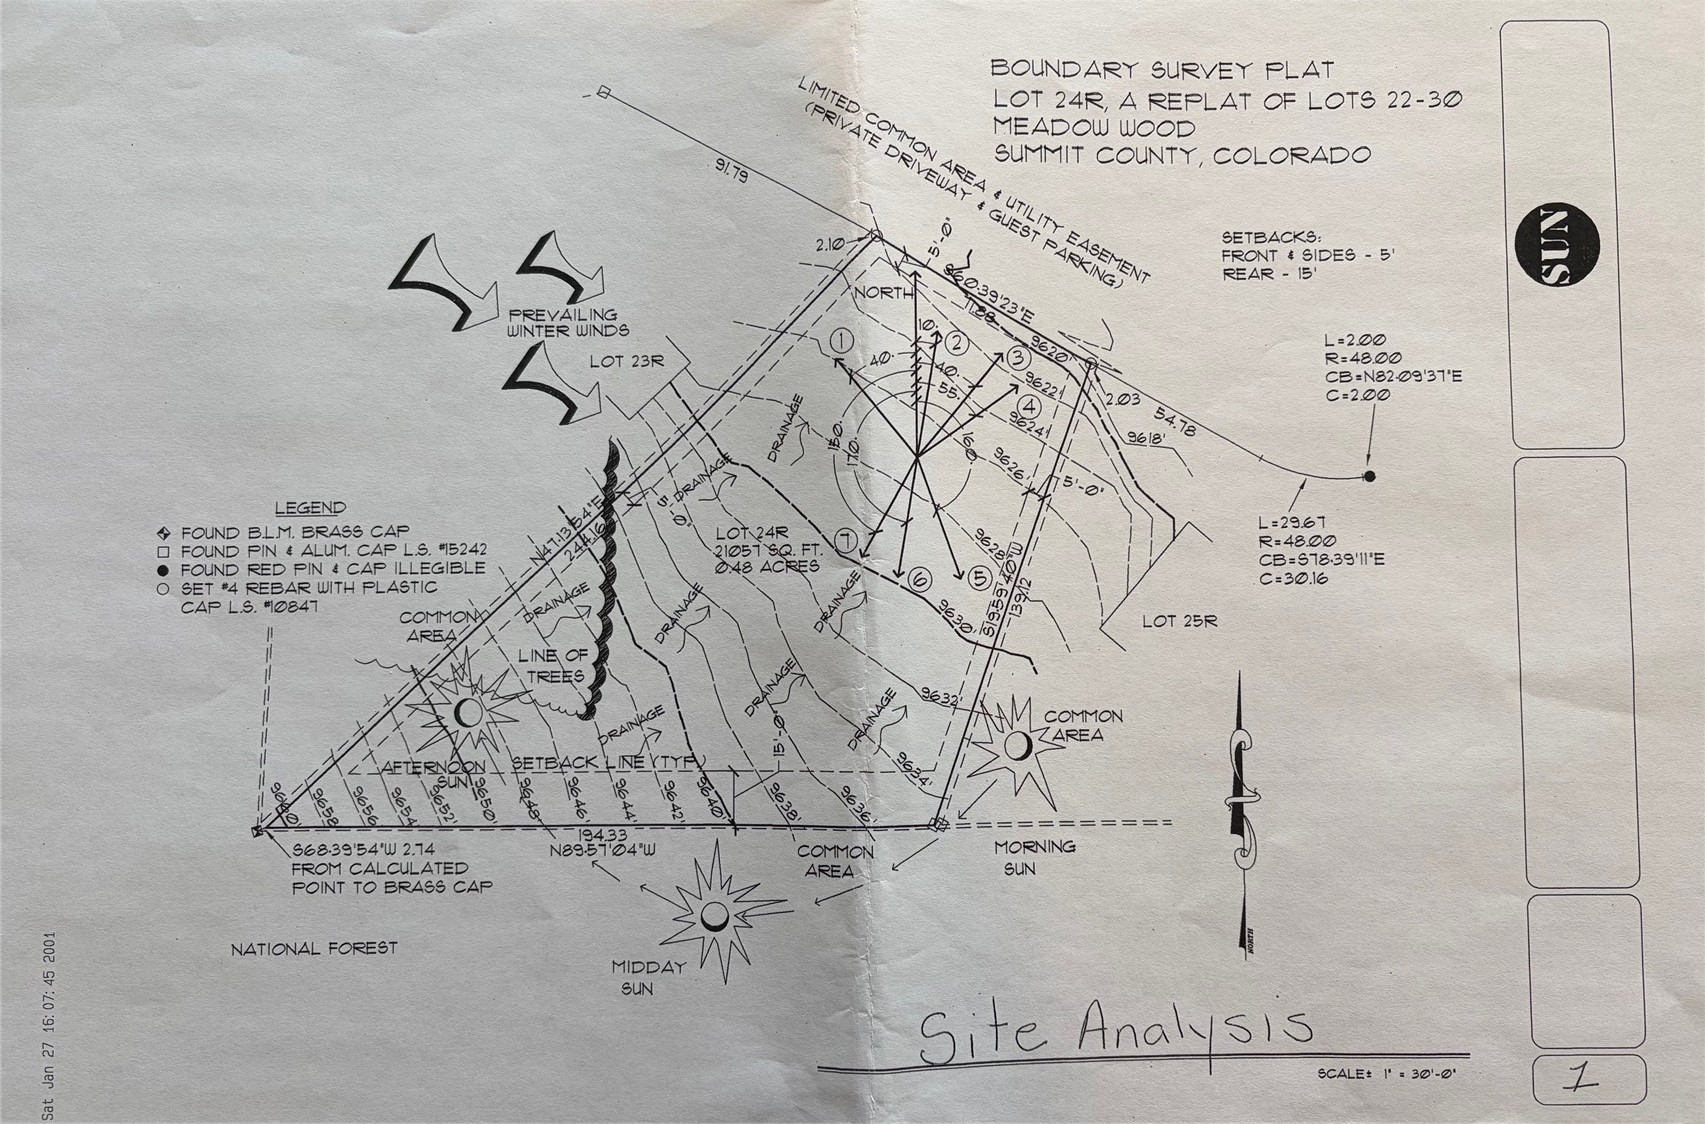 BOUNDARY SURVEY PLAT
LOT 24R, A REPLAT OF LOTS 22-30
MEADOW WOOD
SUMMIT COUNTY, COLORADO
SUN
LIMITED COMMON AREA & UTILITY EASEMENT
(PRIVATE DRIVEWAY & GUEST PARKING)
91.79
SETBACKS:
FRONT & SIDES - 5'
REAR - 15'
2.10
5'-0"
NORTH
S60·39'23"E
PREVAILING
WINTER WINDS
LOT 23R
1
10·
2
3
9620'
40·
40·
55·
9622'
4
9624'
L=2.00
R=48.00
CB=N82·09'37"E
C=2.00
2.03
54.78
9618'
DRAINAGE
170·
9626'
5'-0"
DRAINAGE
LEGEND
FOUND B.L.M. BRASS CAP
FOUND PIN & ALUM. CAP L.S. #15242
FOUND RED PIN & CAP ILLEGIBLE
SET #4 REBAR WITH PLASTIC
CAP L.S. #10847
N47·13'54"E
244.16
LOT 24R
21057 SQ. FT.
0.48 ACRES
7
6
5
9628'
S19·59'40"W
139.12
L=29.67
R=48.00
CB=S78·39'11"E
C=30.16
COMMON
AREA
DRAINAGE
DRAINAGE
DRAINAGE
9630'
LOT 25R
LINE OF
TREES
DRAINAGE
DRAINAGE
DRAINAGE
9632'
COMMON
AREA
15'-0"
AFTERNOON
SUN
SETBACK LINE (TYP.)
9634'
9658'
9656'
9654'
9652'
9650'
9648'
9646'
9644'
9642'
9640'
9638'
9636'
194.33
N89·57'04"W
S68·39'54"W 2.74
FROM CALCULATED
POINT TO BRASS CAP
COMMON
AREA
MORNING
SUN
NATIONAL FOREST
MIDDAY
SUN
NORTH
Site Analysis
SCALE: 1" = 30'-0"
1
Sat Jan 27 16:07:45 2001